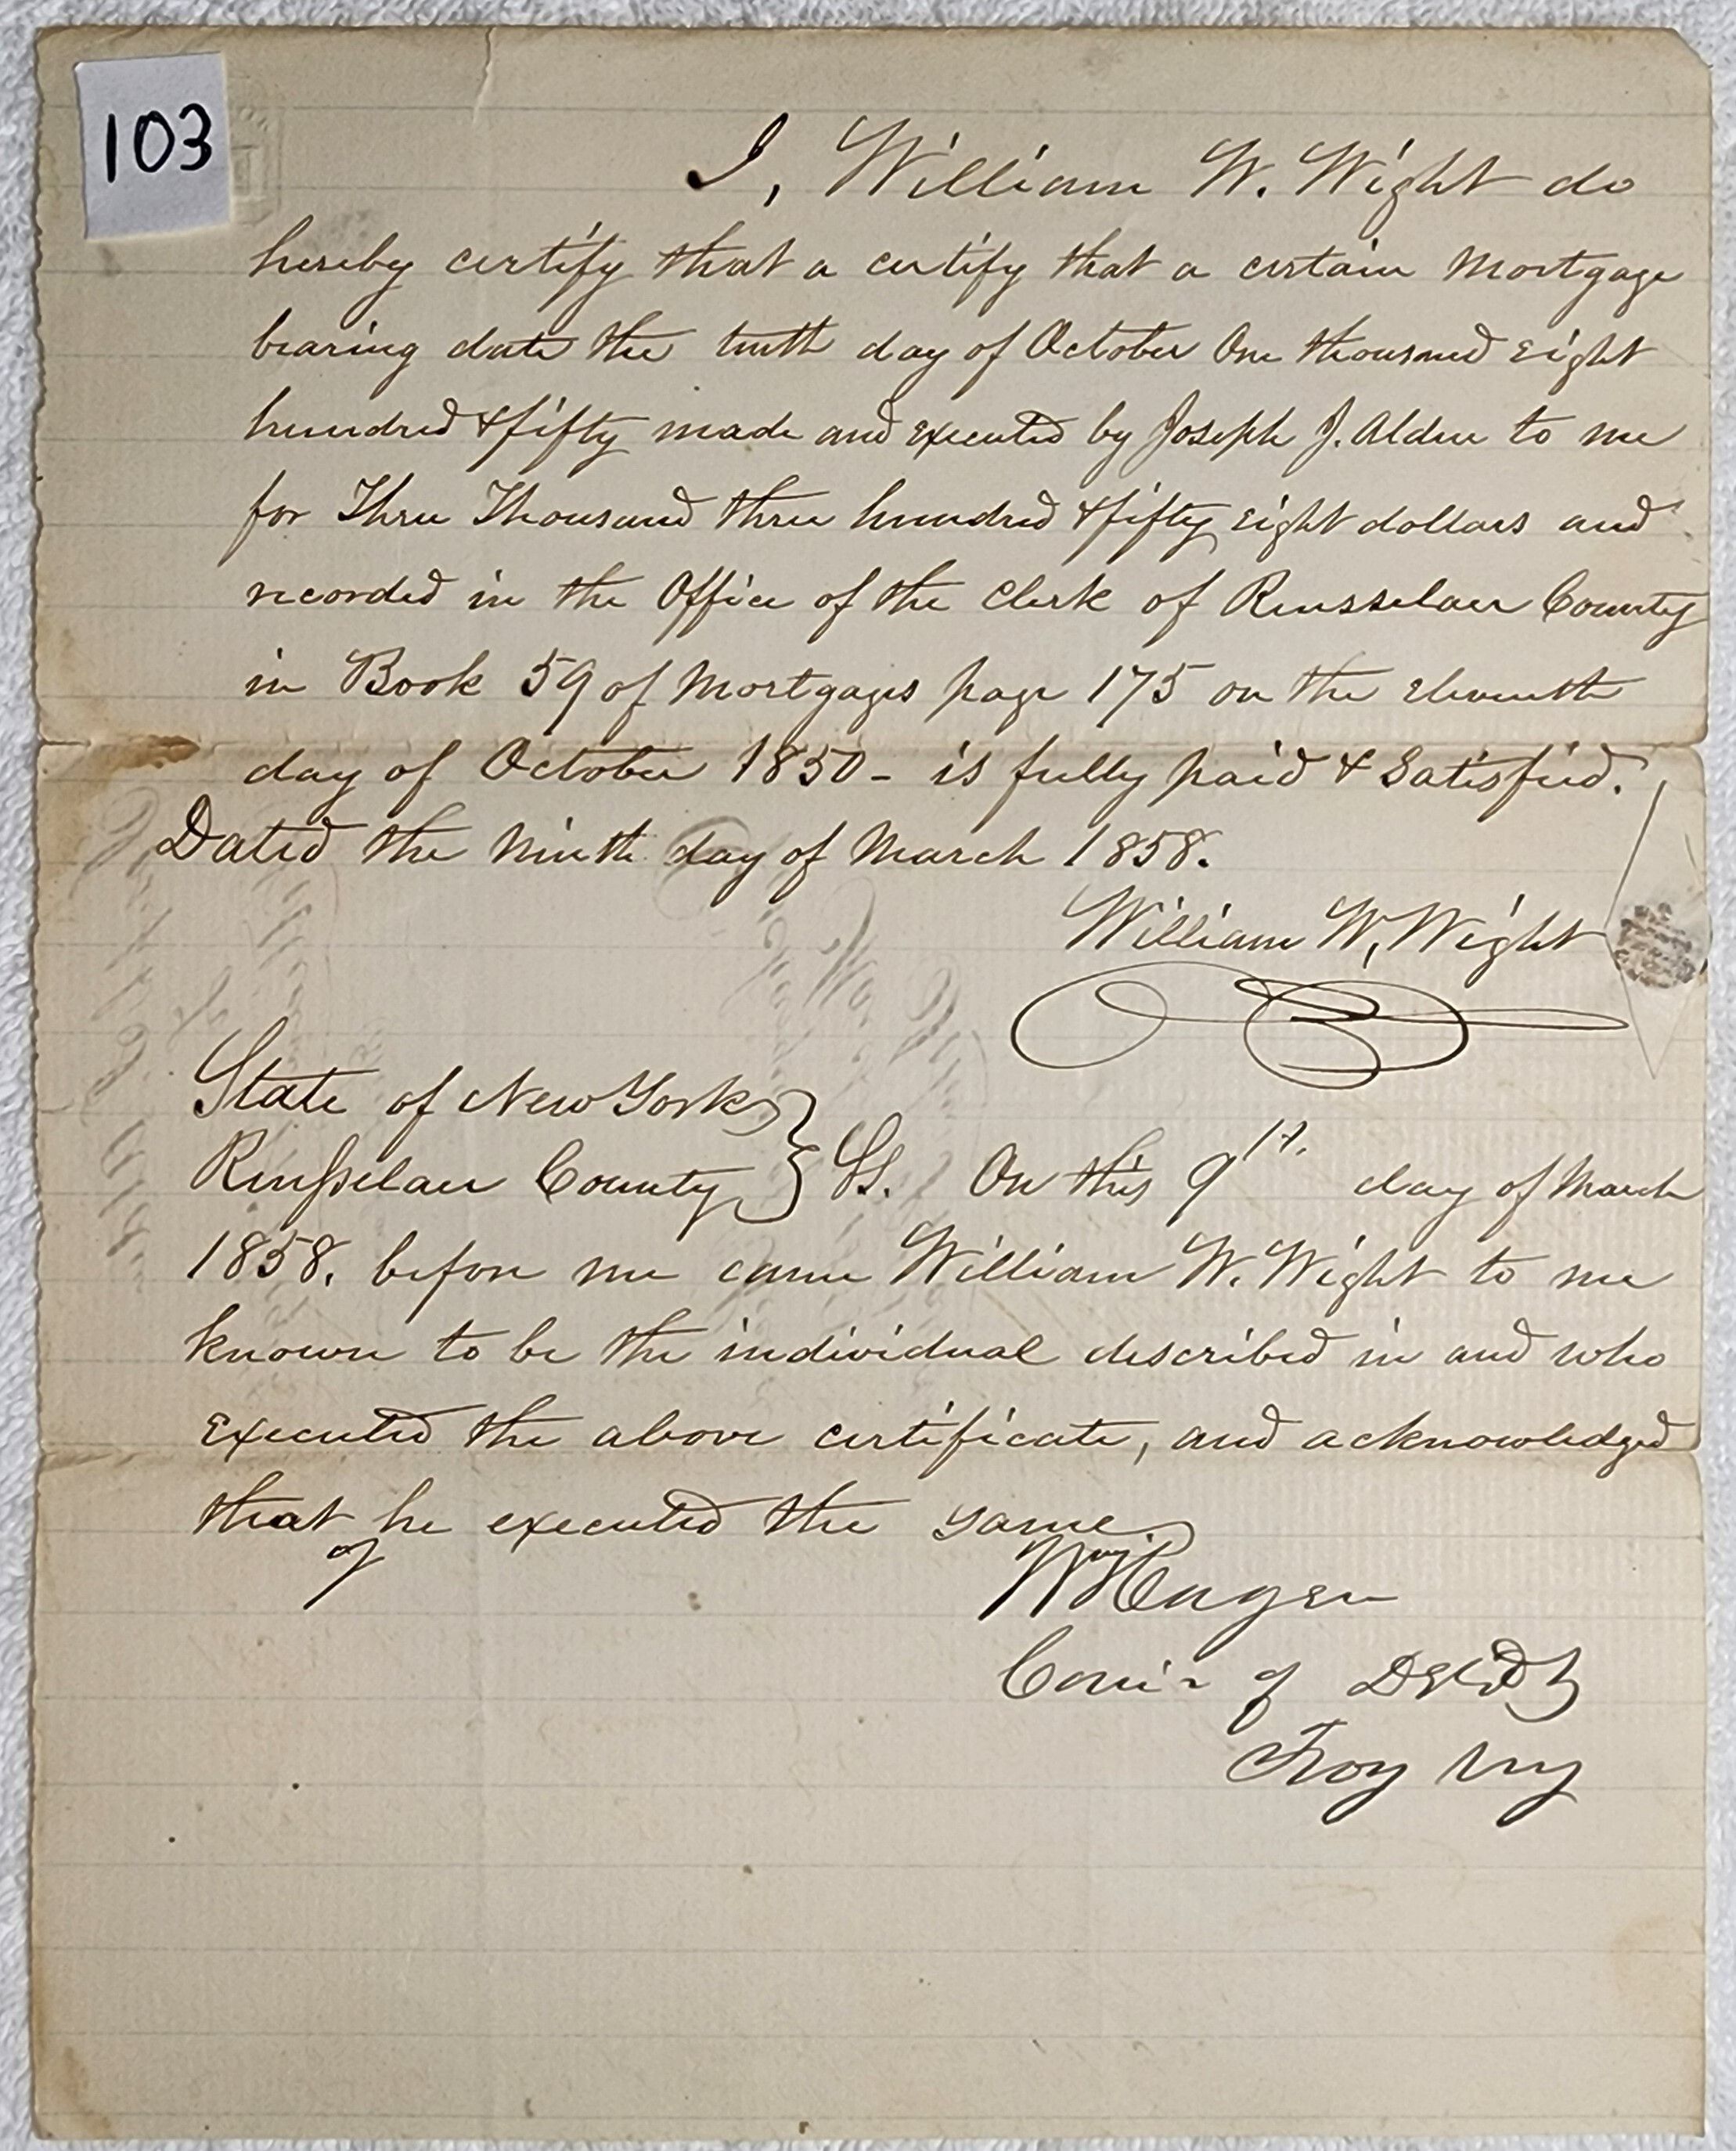 103
I, William W. Wight do
hereby certify that a certify that a certain Mortgage
bearing date the tenth day of October One thousand Eight
hundred & fifty made and Executed by Joseph J. Alden to me
for Three Thousand three hundred & fifty Eight dollars and
recorded in the Office of the Clerk of Rensselaer County
in Book 59 of Mortgages page 175 on the Eleventh
day of October 1850 - is fully paid & Satisfied.
Dated the Ninth day of March 1858.
William W. Wight
State of New York
Rensselaer County } SS. On this 9th. day of March
1858. before me came William W. Wight to me
known to be the individual described in and who
Executed the above certificate, and acknowledged
that he executed the same.
Wm Hagen
of Deeds
Troy NY